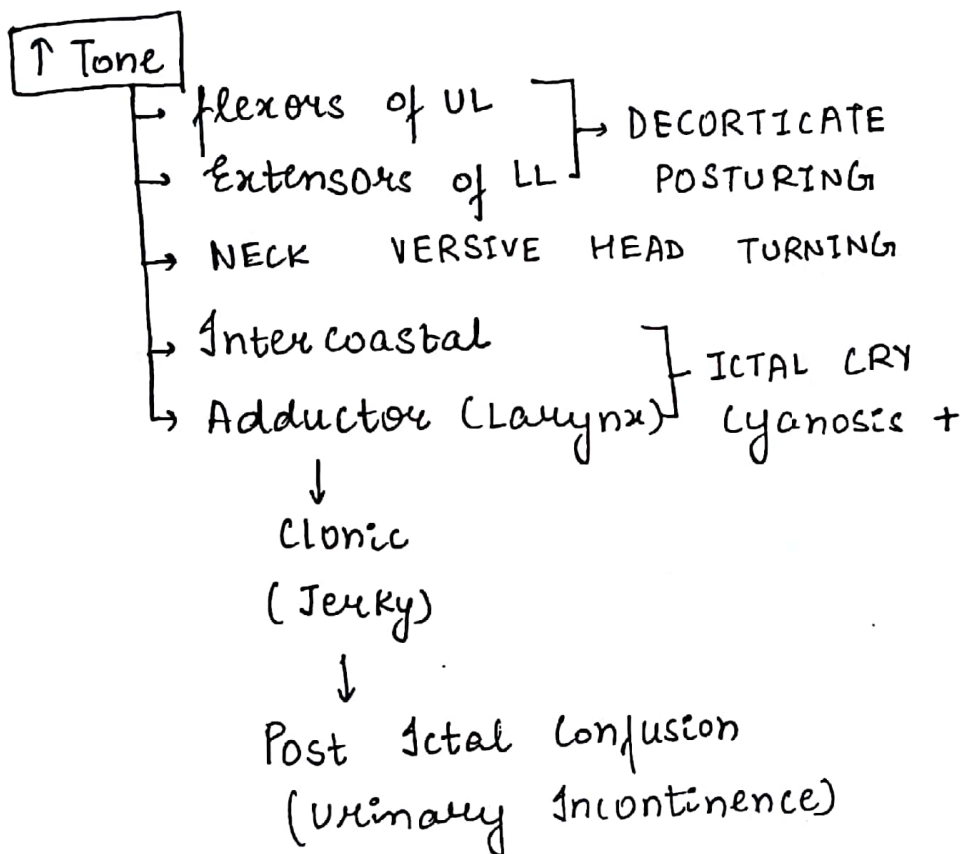 ↑ Tone
→ flexors of UL
→ Extensors of LL → DECORTICATE
POSTURING
→ NECK VERSIVE HEAD TURNING
→ Inter coastal
→ Adductor (Larynx) ICTAL CRY
Cyanosis +
↓
Clonic
(Jerky)
↓
Post Ictal Confusion
(Urinary Incontinence)